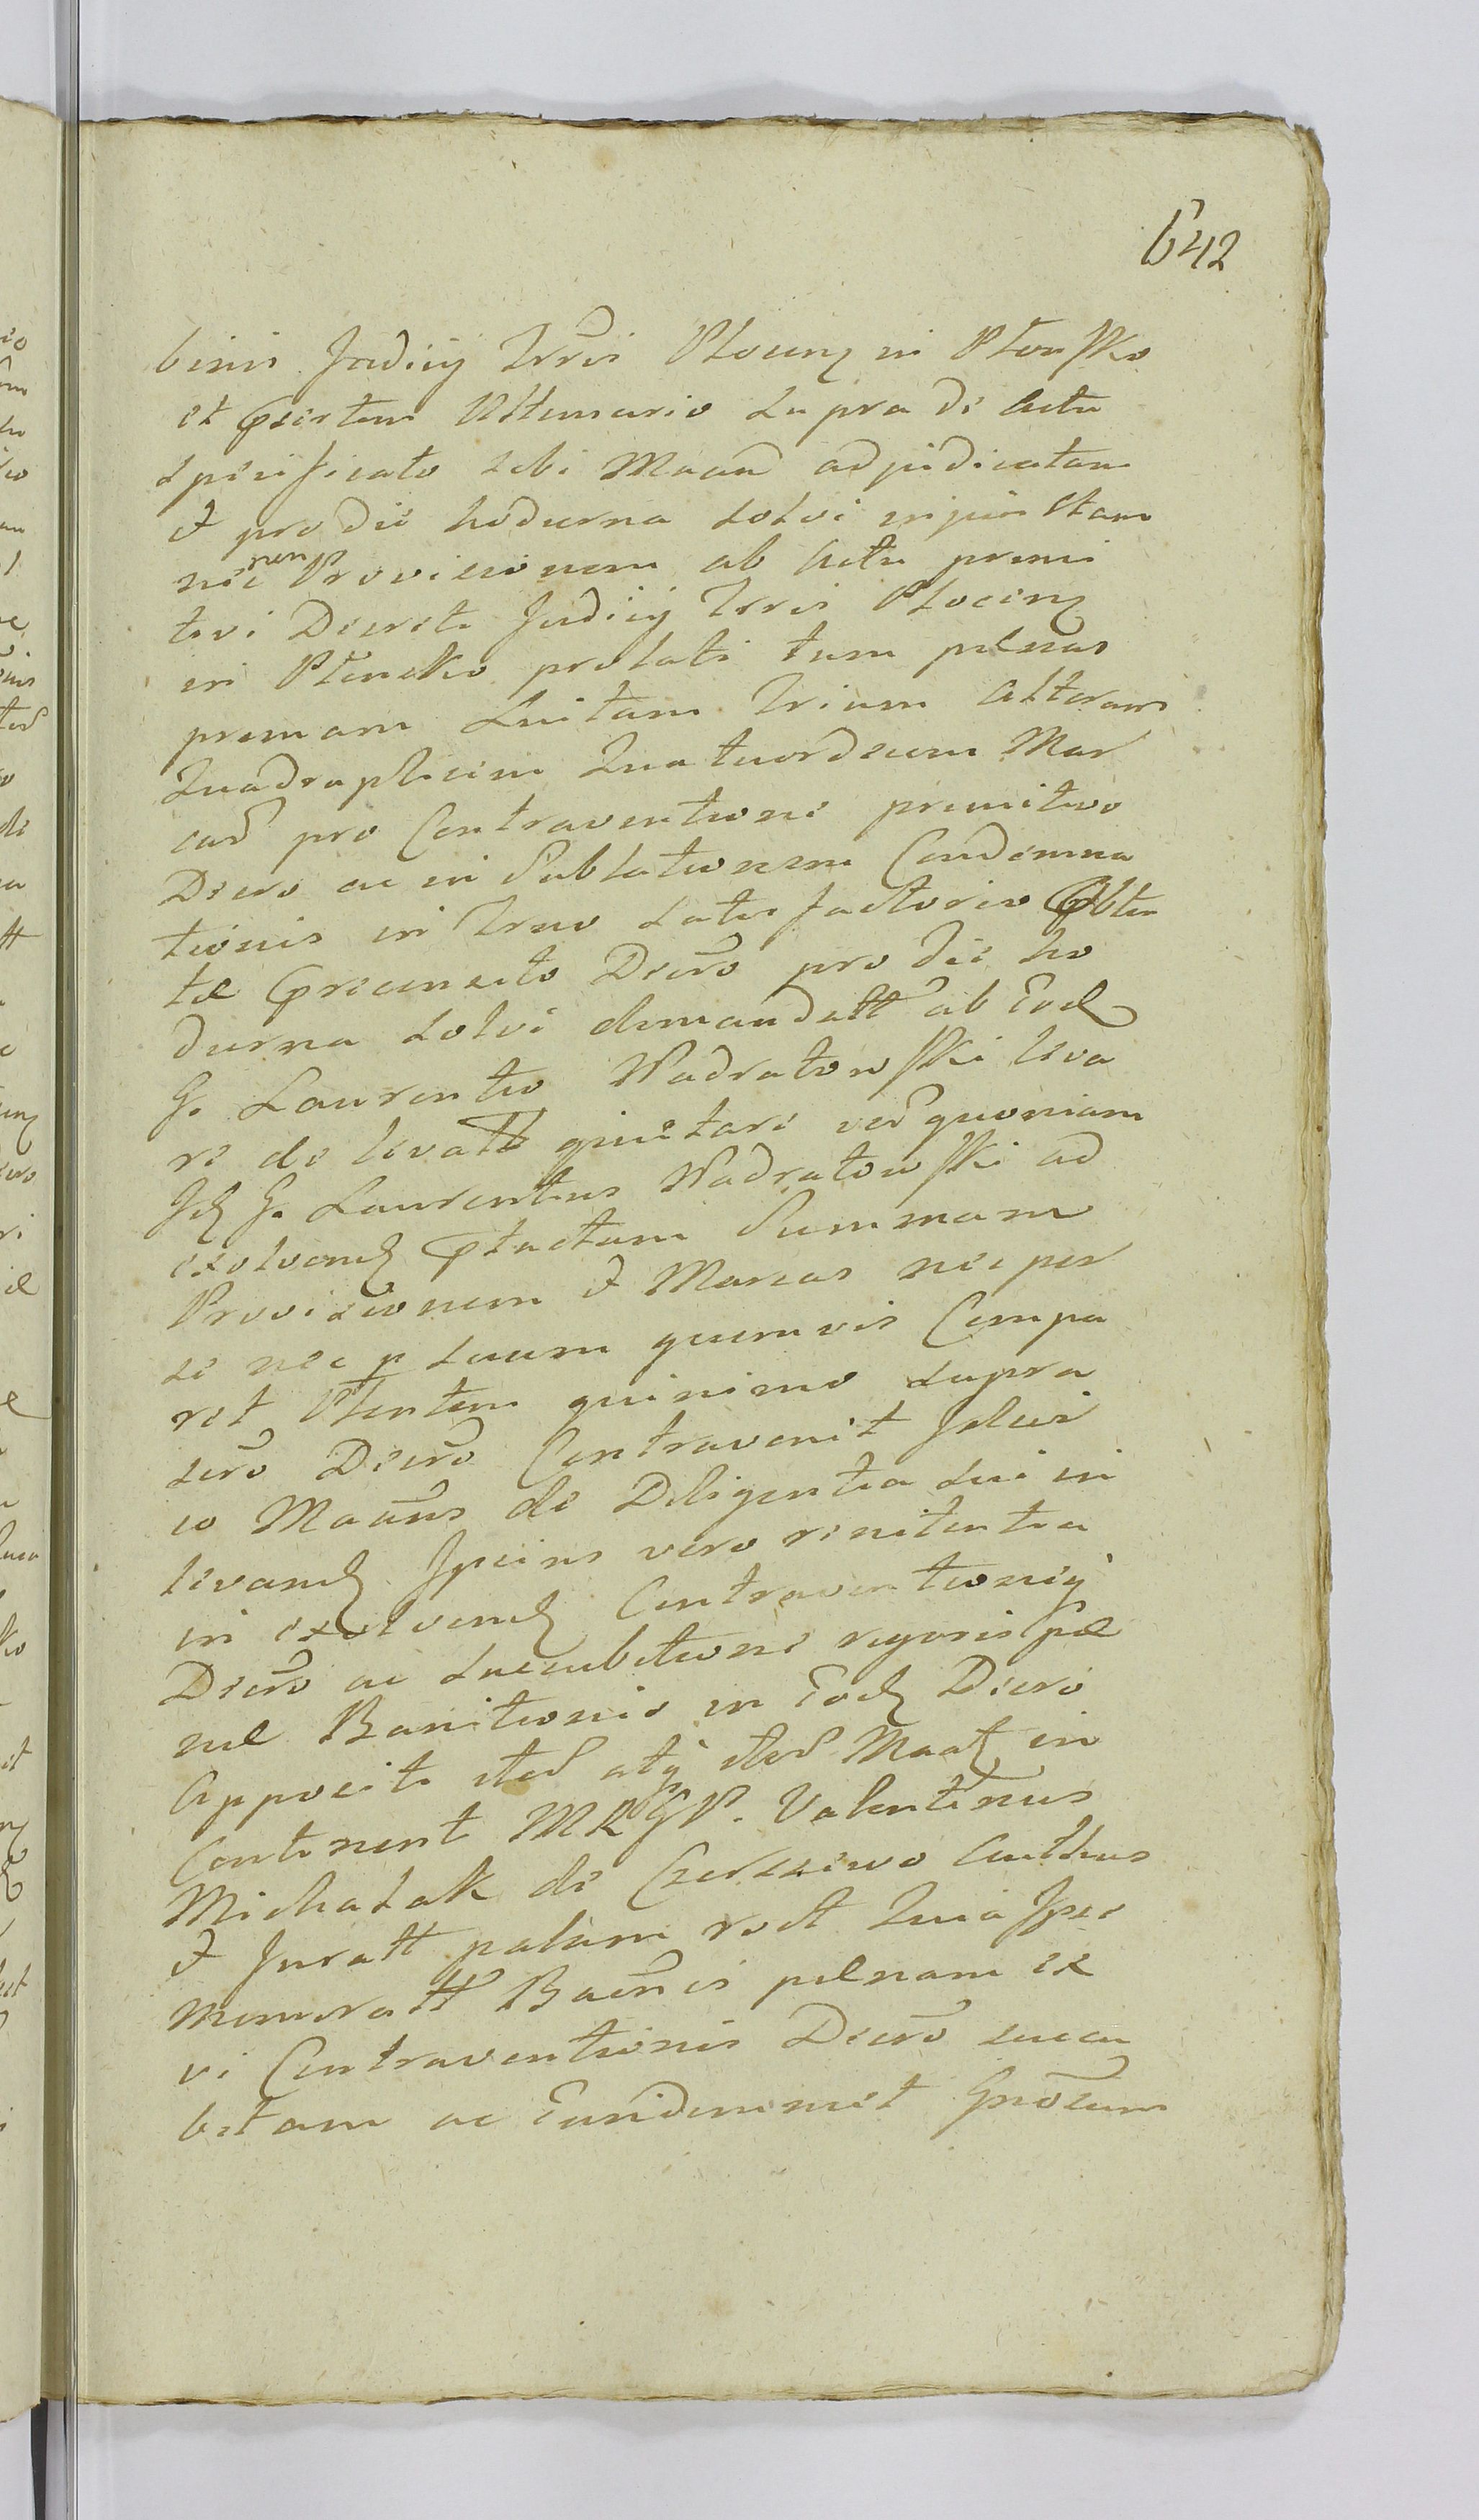 642
binis Judicij Trris Plocens in Płonsko
et psertim Ultimario supra de Actu
specificato sibi Maand adjudicatam
et pro die hodierna solvi injunctam
nec non Provisionem ab Actu primi
tivi Decreti Judicij Trris Plocens
in Płonsko prolati tum pænas
primam Luitam Trium Alteram
Quadruplicem Quatuordecim Mar
card pro Contraventione primitivo
Decro ac in Sublationem Condemna
tionis in Trno Satisfactorio Obten
tæ precuneito Decro pro die ho
dierna solvi demandatt ab Eod
G. Laurentio Nadratowski leva
re de levatt quietare verd quoniam
Id G. Laurentius Nadratowski ad
exolvend ptactam Summam
Provisionem et Marcas nec per
se nec p suum quemvis Compa
ret Plentem quinimo supra
scro Decro Contravenit Ideoi
io Maans de Diligentia sui in
levand Ipsius vero renitentia
in exolvend Contraventioneq
Decro ac succubitione rigoris pæ
næ Banitionis in Eod Decro
Appositi sted atq sted Maat in
Continent MRGP. Valentinus
Michalak de Czerwo Authus
et Juratt palam rect Quia Ipse
memoratt Bacnis pænam ex
vi Contraventionis Decro succu
bitam ac Eundemmet Gnosum